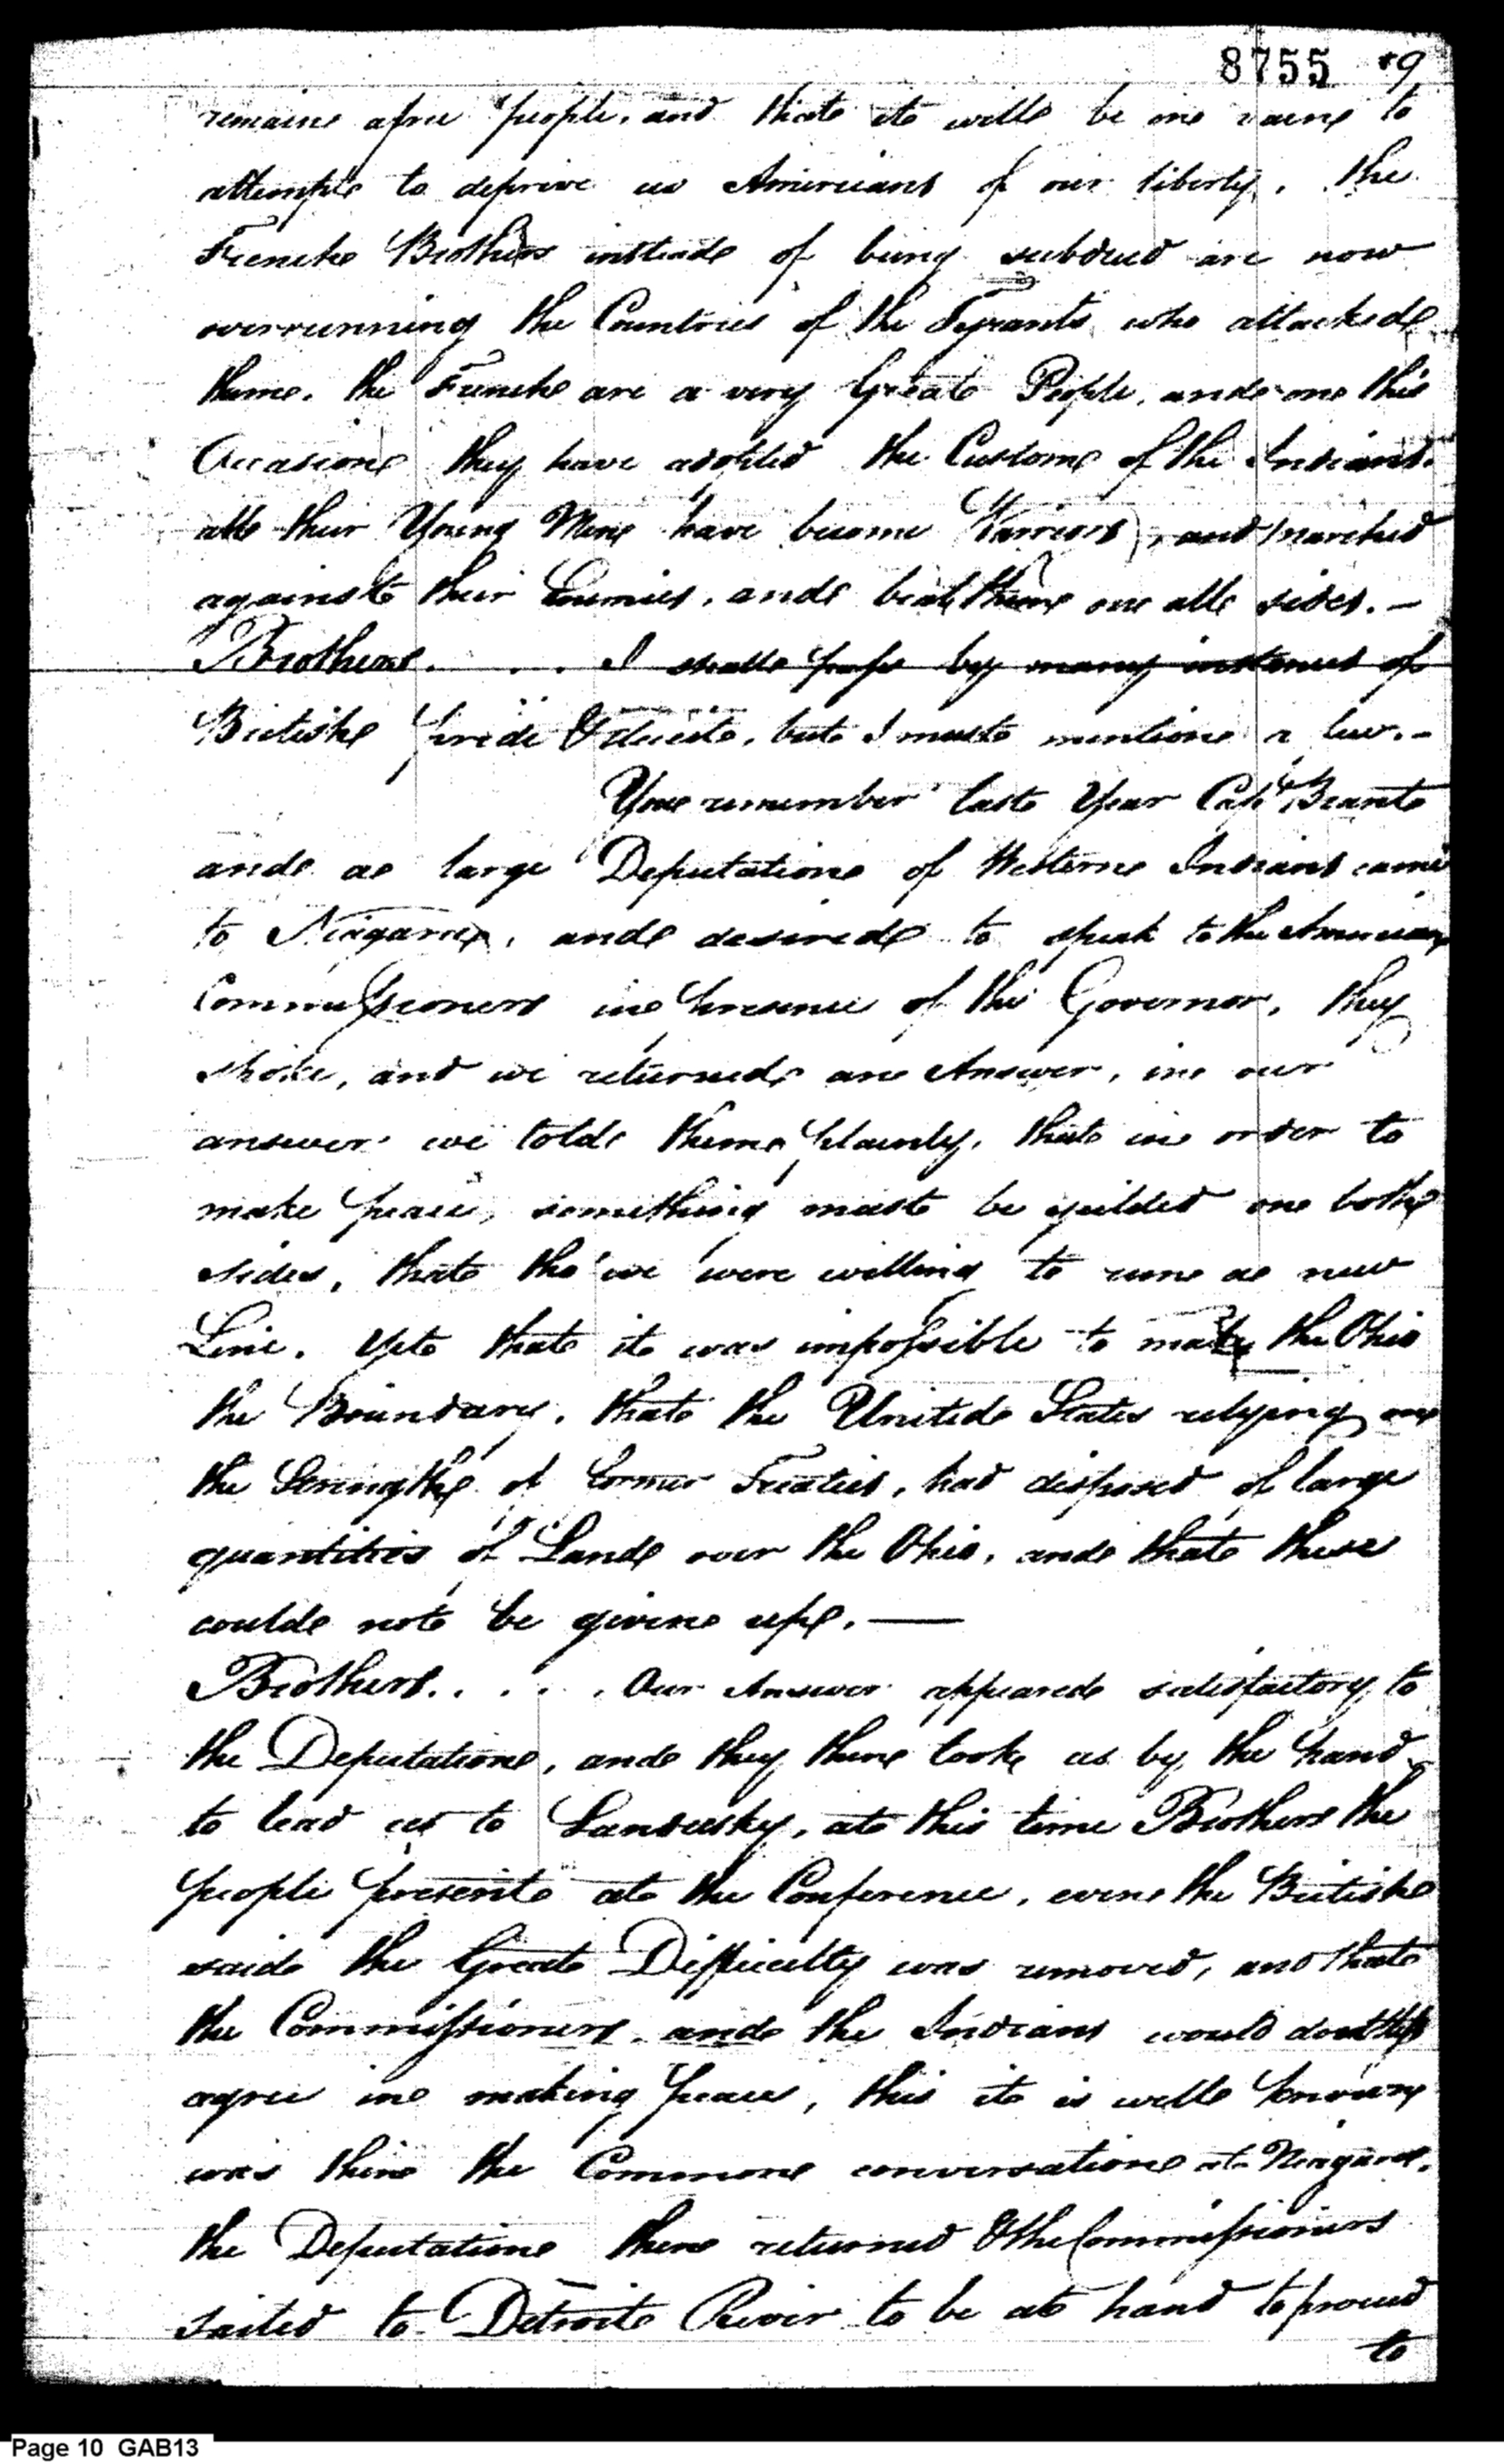 8755 *9
remain a free people, and that it will be in vain to
attempt to deprive us Americans of our liberty. The
French Brothers instead of being subdued are now
overrunning the Countries of the Tyrants who attacked
them. the French are a very Great People, and on this
Occasion they have adopted the Custom of the Indians.
all their Young Men have become Warriors, and marched
against their Enemies, and beat them on all sides. —
Brothers. . . . I shall pass by many instances of
British pride &, but I must mention a few. —
You remember last Year Capt Brant
and a large Deputation of Western Indians came
to Niagara, and desired to speak to the American
Commissioners in presence of the Governor, they
spoke, and we returned an Answer, in our
answer we told them plainly, that in order to
make peace, something must be yeilded on both
sides, that tho' we were willing to run a new
Line. Yet that it was impossible to make the Ohio
the Boundary, that the United States relying on
the Strength of former Treaties, had disposed of large
quantities of Land over the Ohio, and that these
could not be given up. —
Brothers. . . . . Our Answer appeared satisfactory to
the Deputation, and they then took us by the hand
to lead us to Sandusky, at this time Brothers the
people present at the Conference, even the British
said the Great Difficulty was removed, and that
the Commissioners and the Indians would doubtless
agree in making peace, this it is well known
was then the Common conversation at Niagara.
the Deputation then returned & the Commissioners
sailed to Detroit River to be at hand to proceed
to
Page 10 GAB13